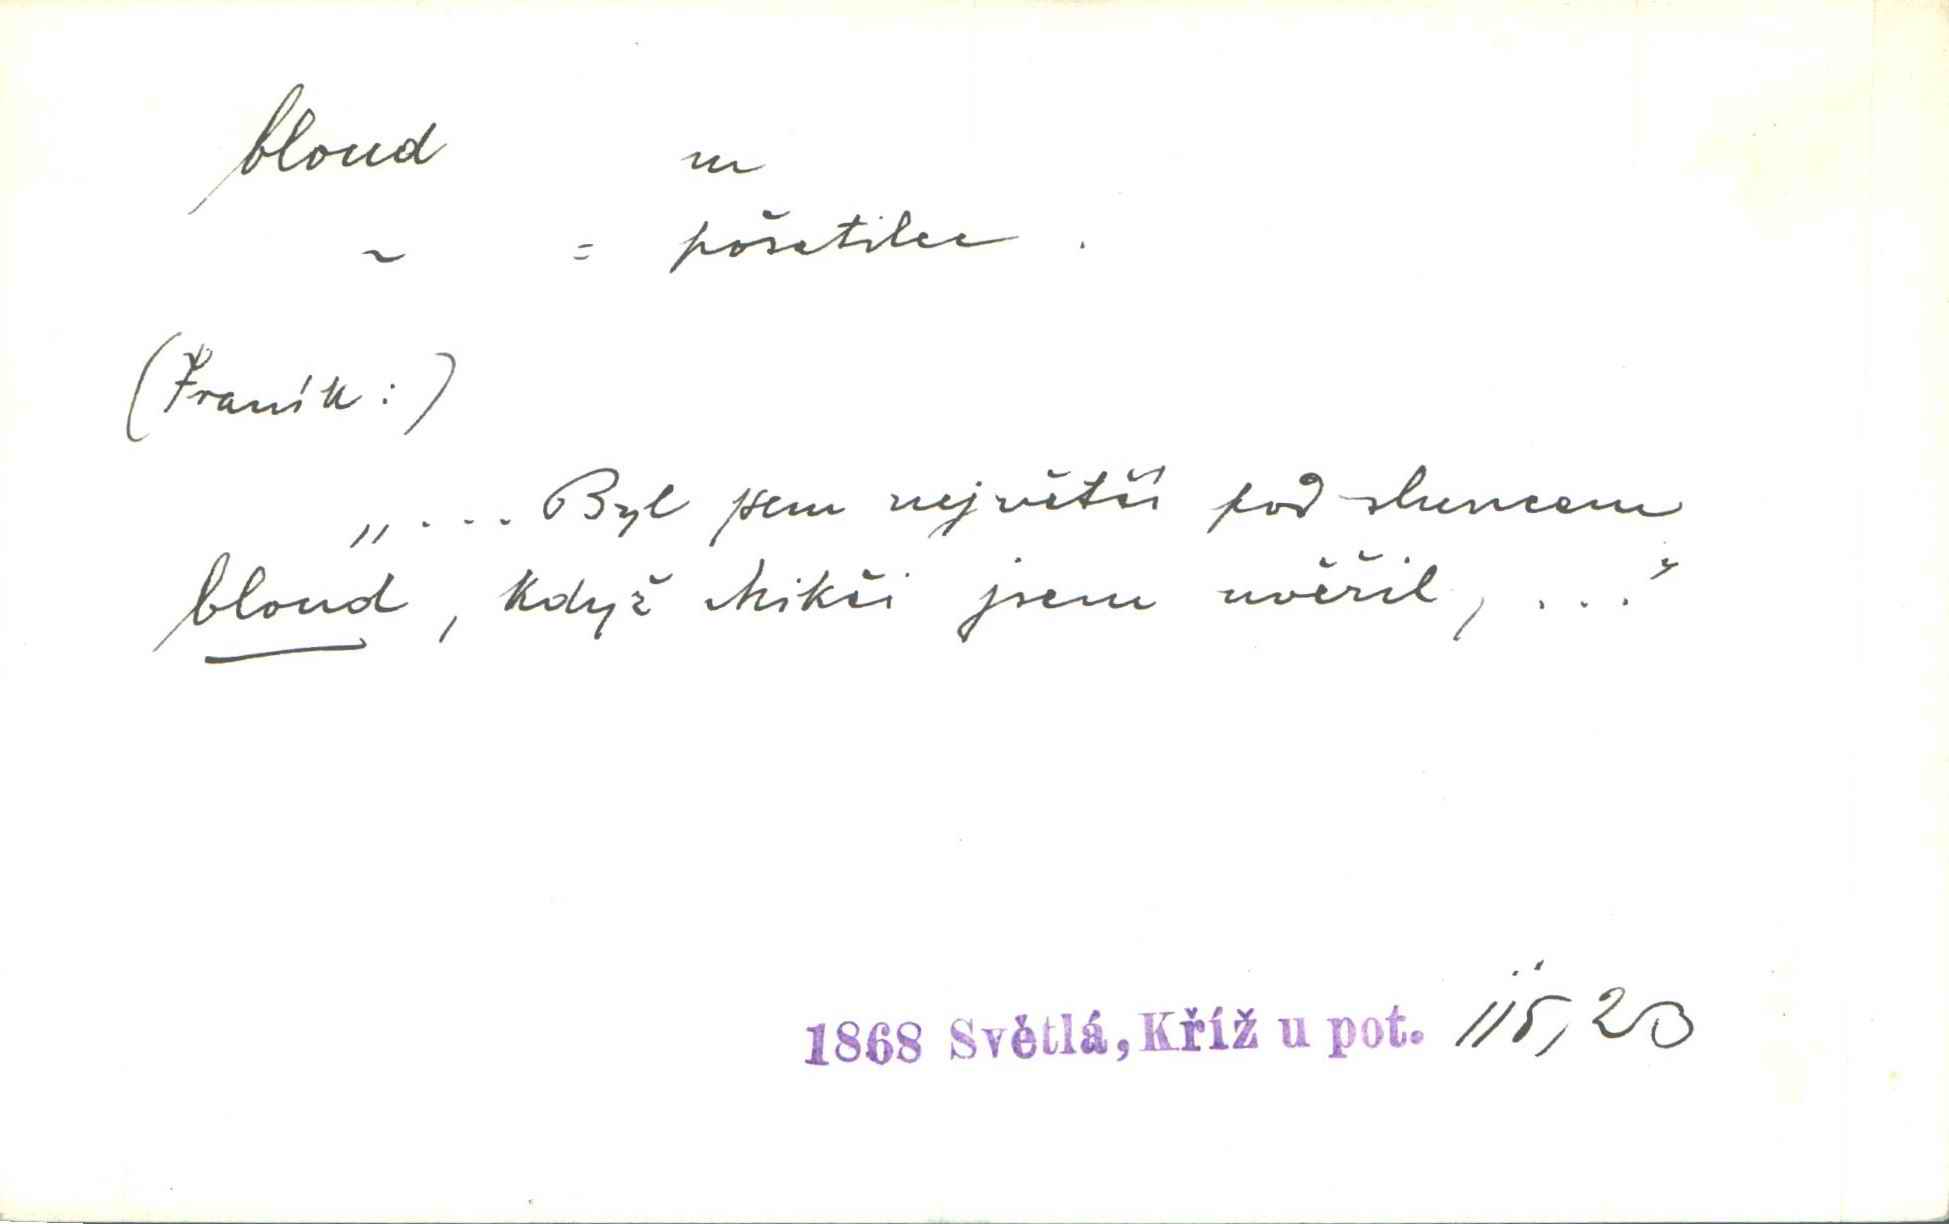 bloud m
~ = pošetilec .
(Franík:)
„... Byl jsem největší pod sluncem
bloud, když Mikši jsem uvěřil, ..."
1868 Světlá, Kříž u pot. 115,20